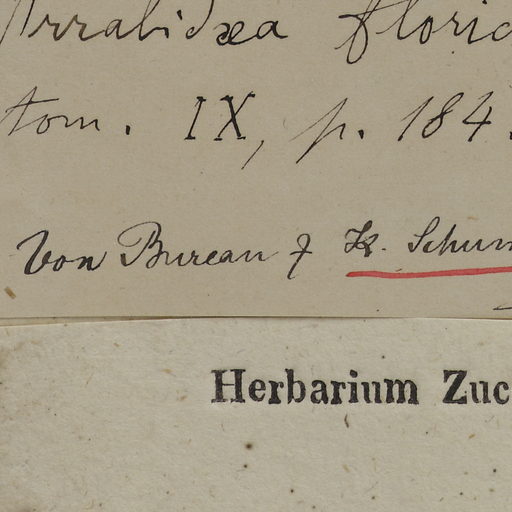 Arrabidæa florid
tom. IX, p. 184
Von Bureau & K. Schum
Herbarium Zuc